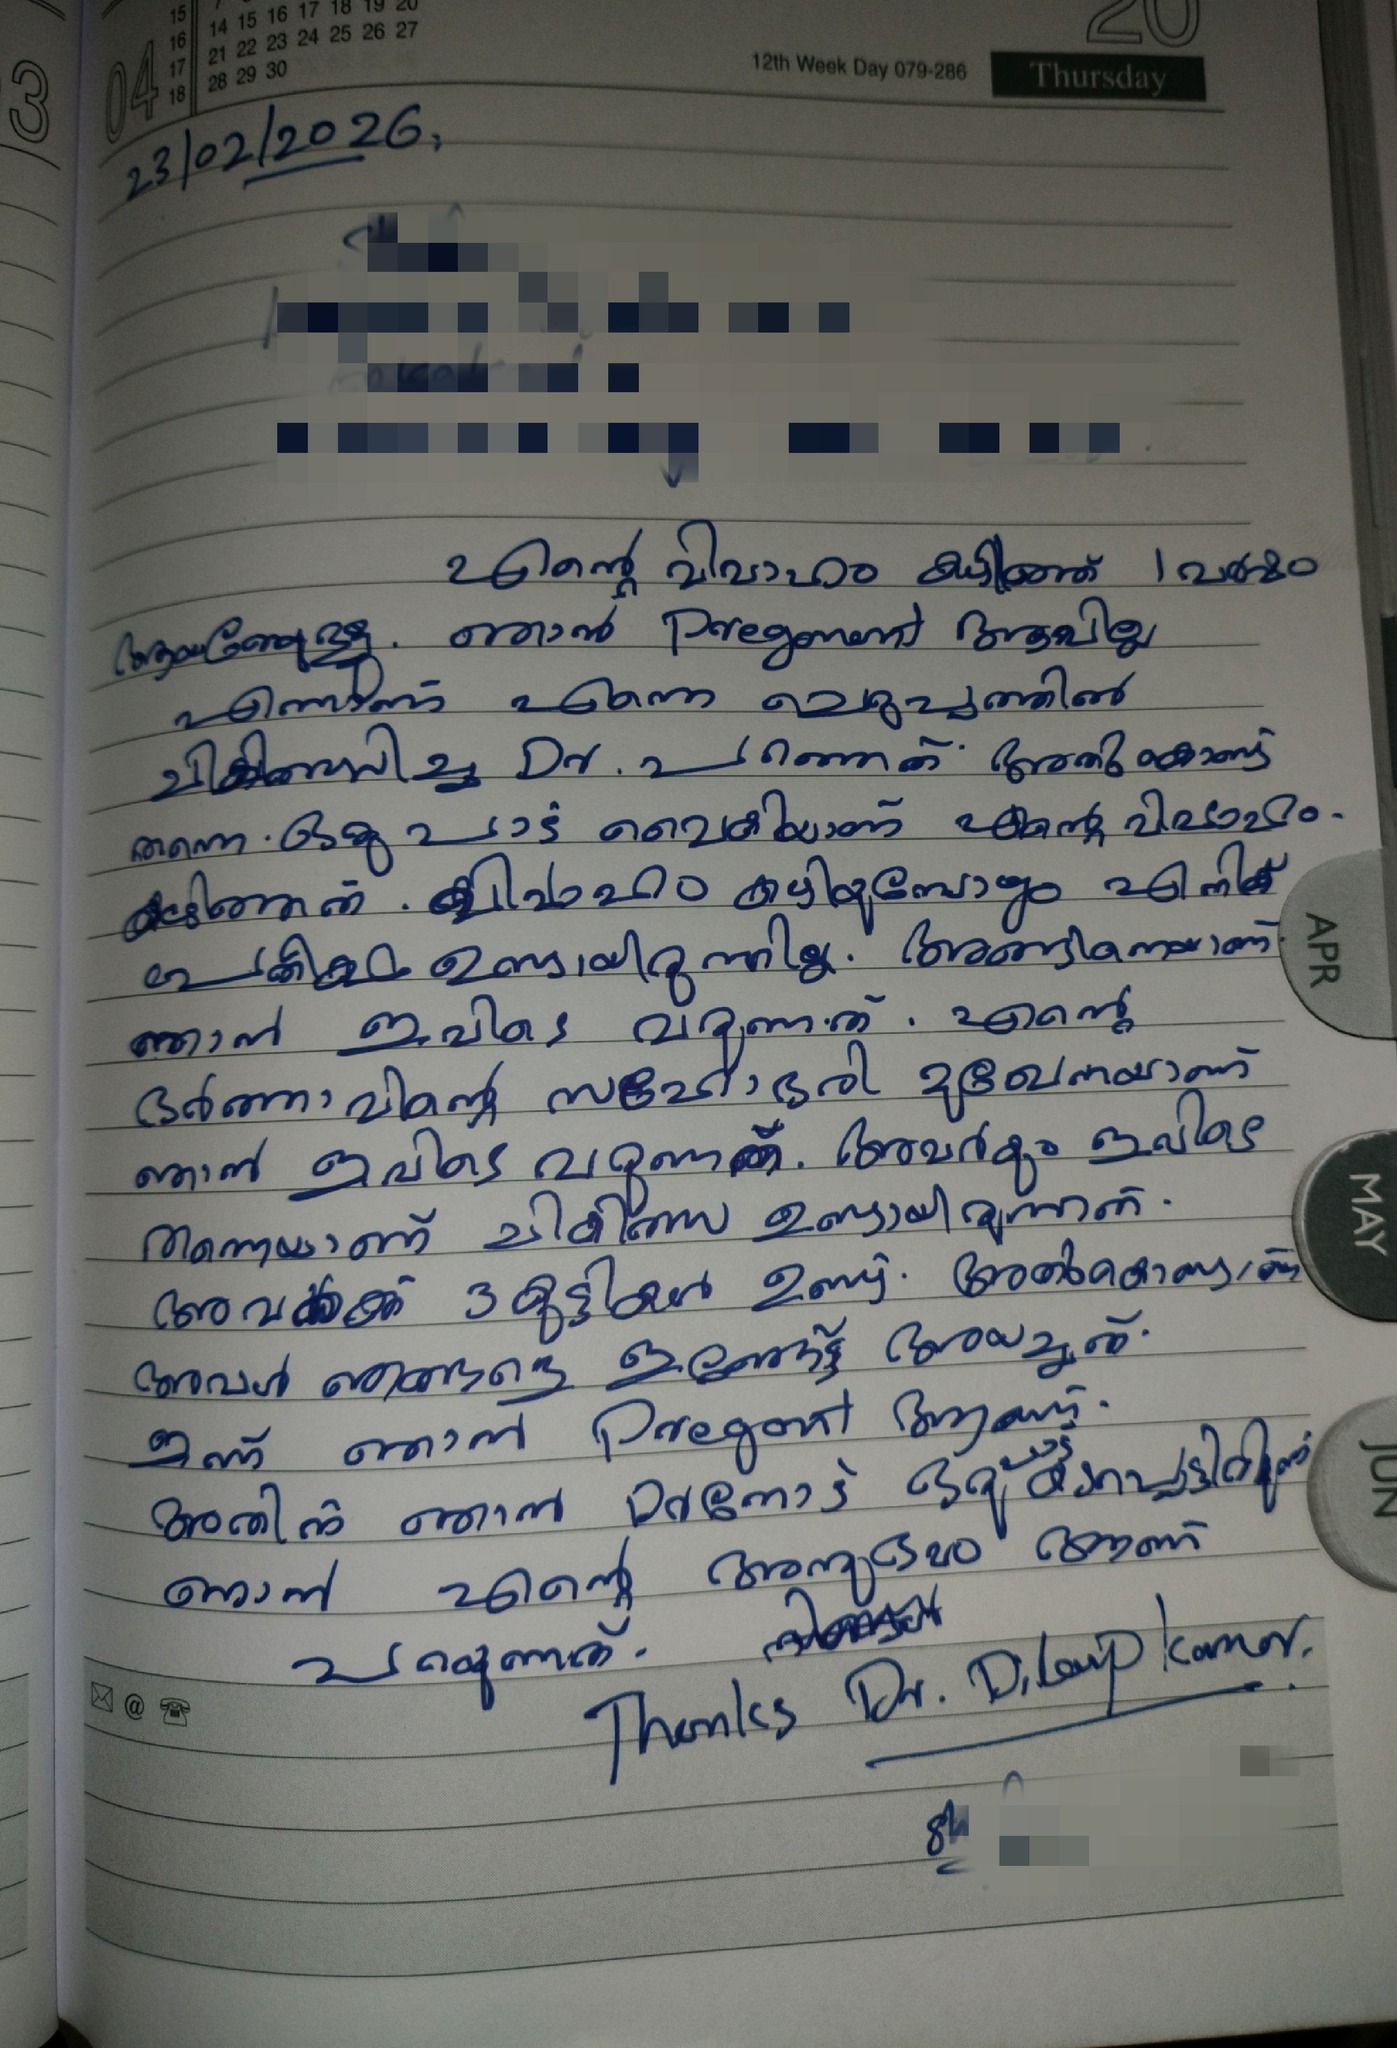 15
16
17
18
14 15 16 17 18 19 20
21 22 23 24 25 26 27
28 29 30
04
3
20
12th Week Day 079-286
Thursday
23/02/2026,
എന്റെ വിവാഹം കഴിഞ്ഞ് 1 വർഷം
ഞാൻ Pregnent ആവില്ല
എന്നാണ് എന്നെ ചെറുപ്പത്തിൽ
ചികിത്സിച്ച Dr. പറഞ്ഞത്. അതുകൊണ്ട്
തന്നെ. ഒരു പാട് വൈകിയാണ് എന്റെ വിവാഹം.
കഴിഞ്ഞത്. വിവാഹം കഴിയുമ്പോളും എനിക്ക്
പ്രതീക്ഷ ഉണ്ടായിരുന്നില്ല. അങ്ങിനെയാണ്
ഞാൻ ഇവിടെ വരുണത്. എന്റെ
ഭർത്താവിന്റെ സഹോദരി മുഖേനയാണ്
ഞാൻ ഇവിടെ വരുണത്. അവർകും ഇവിടെ
തന്നെയാണ് ചികിത്സ ഉണ്ടായിരുന്നത്.
അവർക്ക് 3 കുട്ടികൾ ഉണ്ട്. അതുകൊണ്ടാണ്
അവൾ ഞങ്ങളെ ഇങ്ങോട്ട് അയച്ചത്.
ഇന്ന് ഞാൻ Pregnent ആണ്.
അതിന് ഞാൻ Drനോട് ഒരുപാട് കടപ്പെട്ടിരിക്കുന്നു
ഞാൻ എന്റെ അനുഭവം ആണ്
പറയുണത്.
Thanks Dr. Dileep Kumar.
APR
MAY
JUN